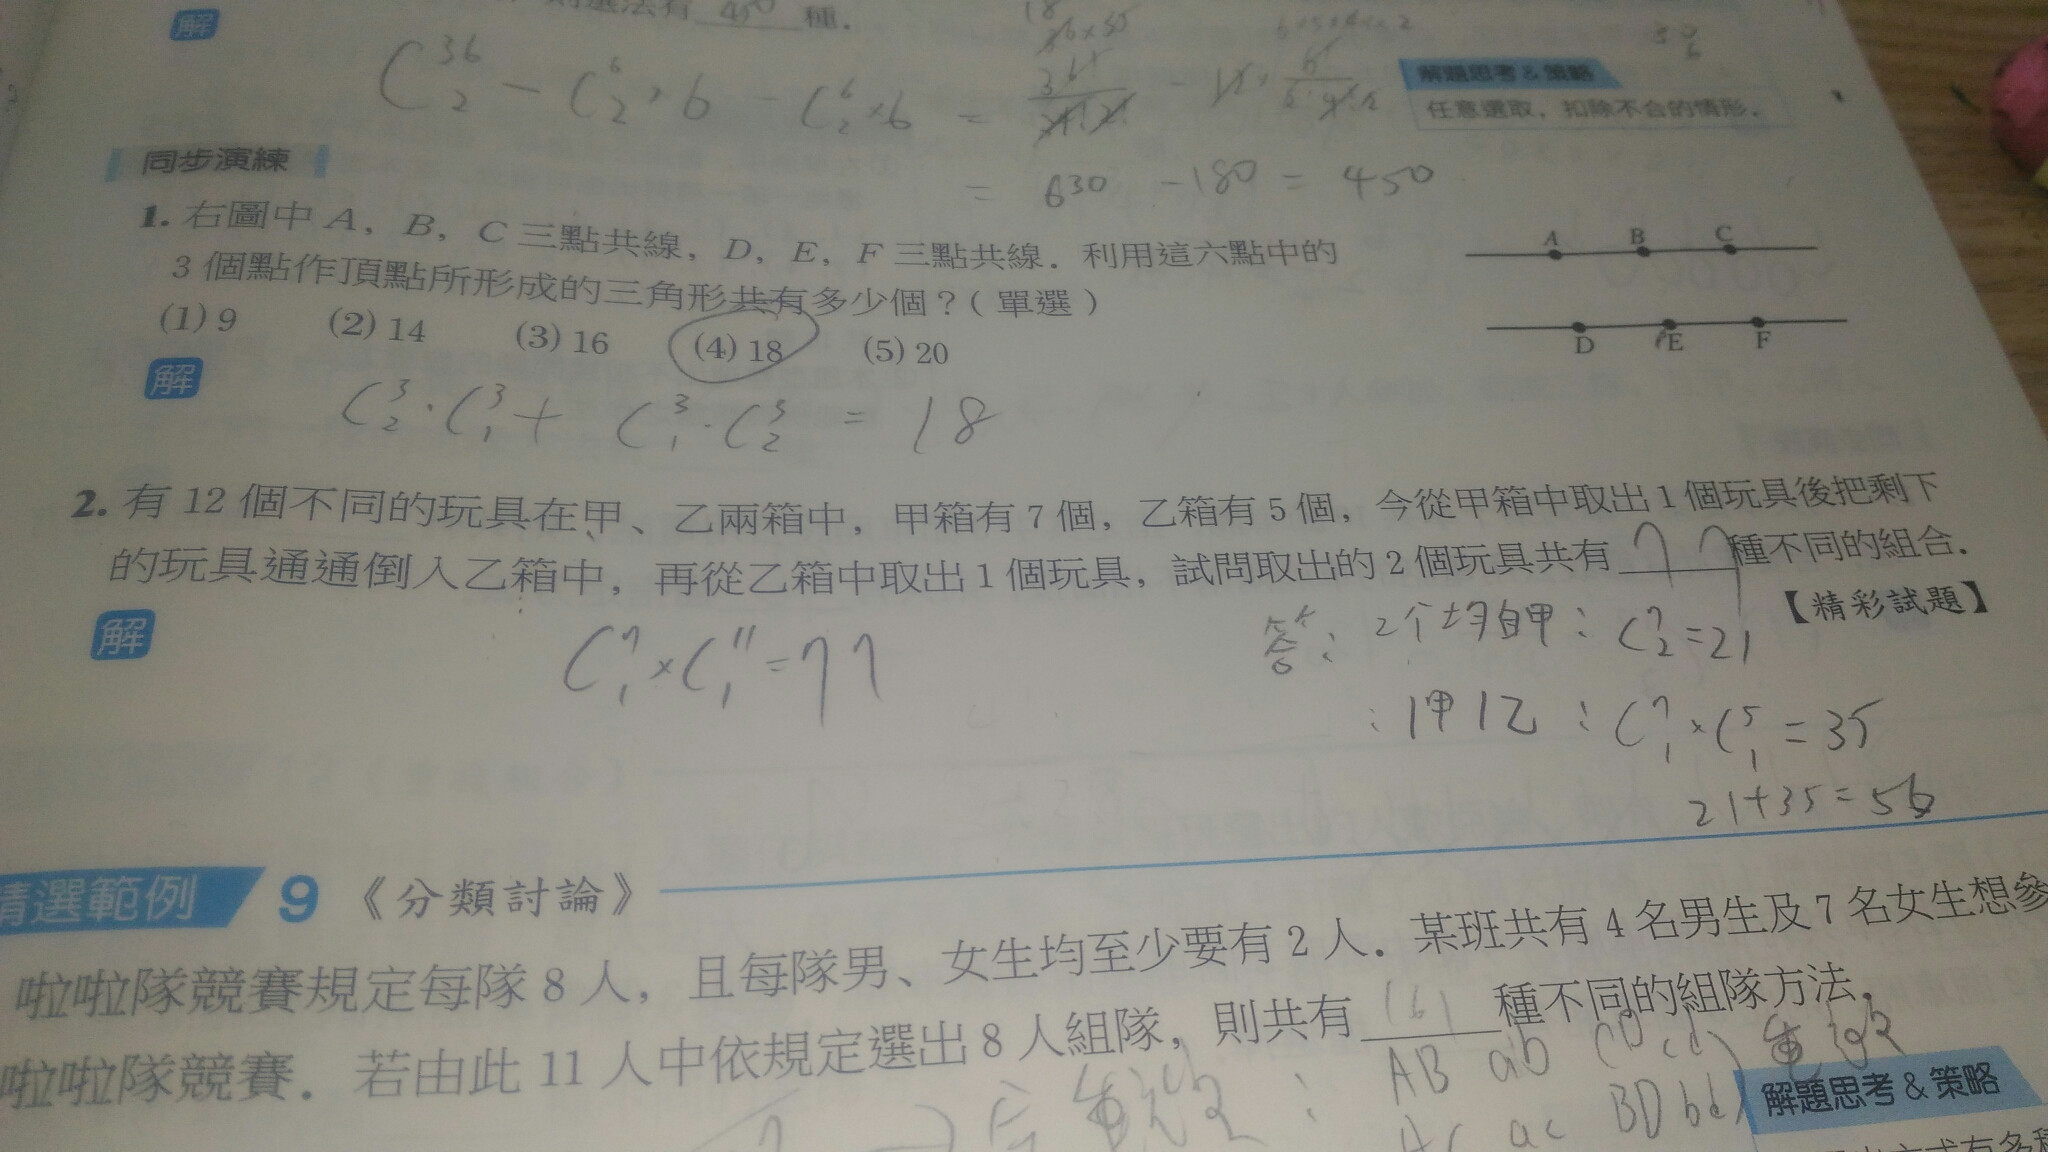 選法有 450 種．
解
C³⁶₂ − C⁶₂×6 − C⁶₂×6 =
= 630 − 180 = 450
解題思考 & 策略
任意選取，扣除不合的情形．
同步演練
1. 右圖中 A，B，C 三點共線，D，E，F 三點共線．利用這六點中的
3 個點作頂點所形成的三角形共有多少個？（單選）
(1) 9 (2) 14 (3) 16 (4) 18 (5) 20
A B C
D E F
解
C³₂·C³₁ + C³₁·C³₂ = 18
2. 有 12 個不同的玩具在甲、乙兩箱中，甲箱有 7 個，乙箱有 5 個，今從甲箱中取出 1 個玩具後把剩下
的玩具通通倒入乙箱中，再從乙箱中取出 1 個玩具，試問取出的 2 個玩具共有 77 種不同的組合．
【精彩試題】
解
C⁷₁×C¹¹₁=77
答： 2个均自甲：C⁷₂=21
：1甲1乙：C⁷₁×C⁵₁=35
21+35=56
精選範例 9 《分類討論》
啦啦隊競賽規定每隊 8 人，且每隊男、女生均至少要有 2 人．某班共有 4 名男生及 7 名女生想參
啦啦隊競賽．若由此 11 人中依規定選出 8 人組隊，則共有 161 種不同的組隊方法．
AB ab CD cd
BD bd
ac
解題思考 & 策略